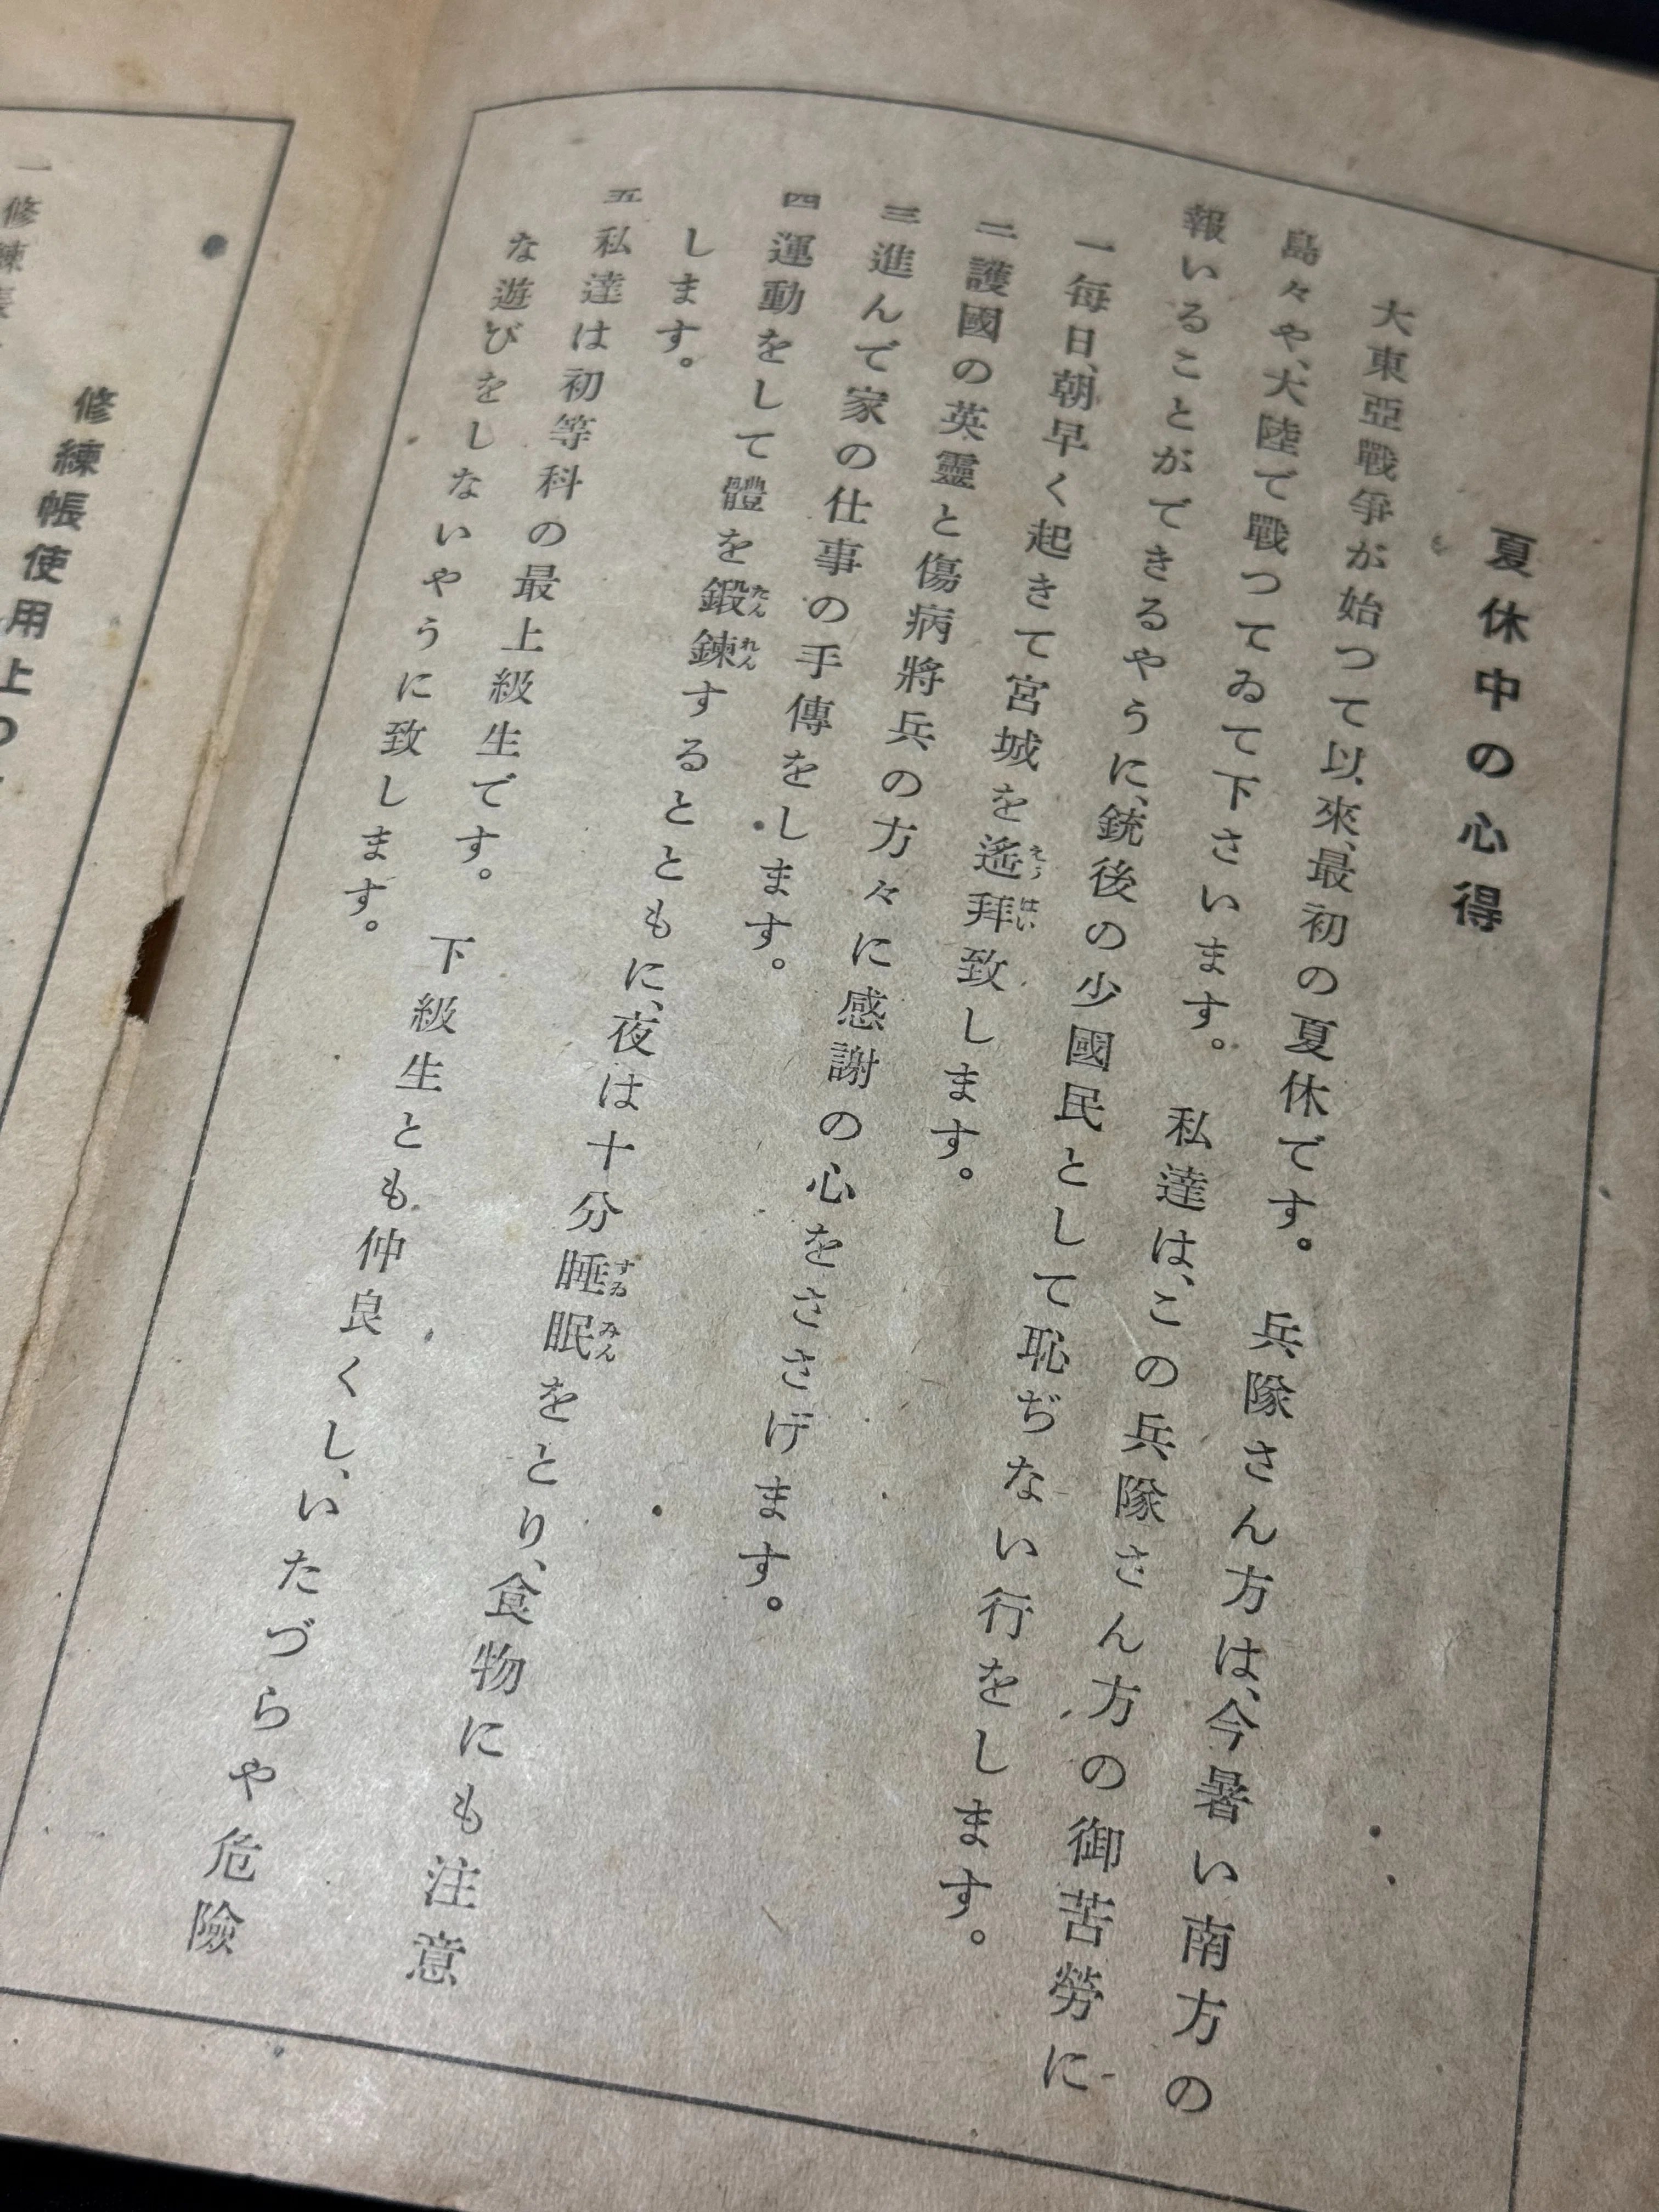 夏休中の心得
大東亞戰爭が始つて以來、最初の夏休です。　兵隊さん方は、今暑い南方の
島々や、大陸で戰つてゐて下さいます。　私達は、この兵隊さん方の御苦勞に
報いることができるやうに、銃後の少國民として恥ぢない行をします。
一 每日、朝早く起きて宮城を遙拜致します。
えうはい
二 護國の英靈と傷病將兵の方々に感謝の心をささげます。
三 進んで家の仕事の手傳をします。
四 運動をして體を鍛鍊するとともに、夜は十分睡眠をとり、食物にも注意
たんれん
すゐみん
します。
五 私達は初等科の最上級生です。　下級生とも仲良くし、いたづらや危險
な遊びをしないやうに致します。
修練帳使用上の
一 修練帳